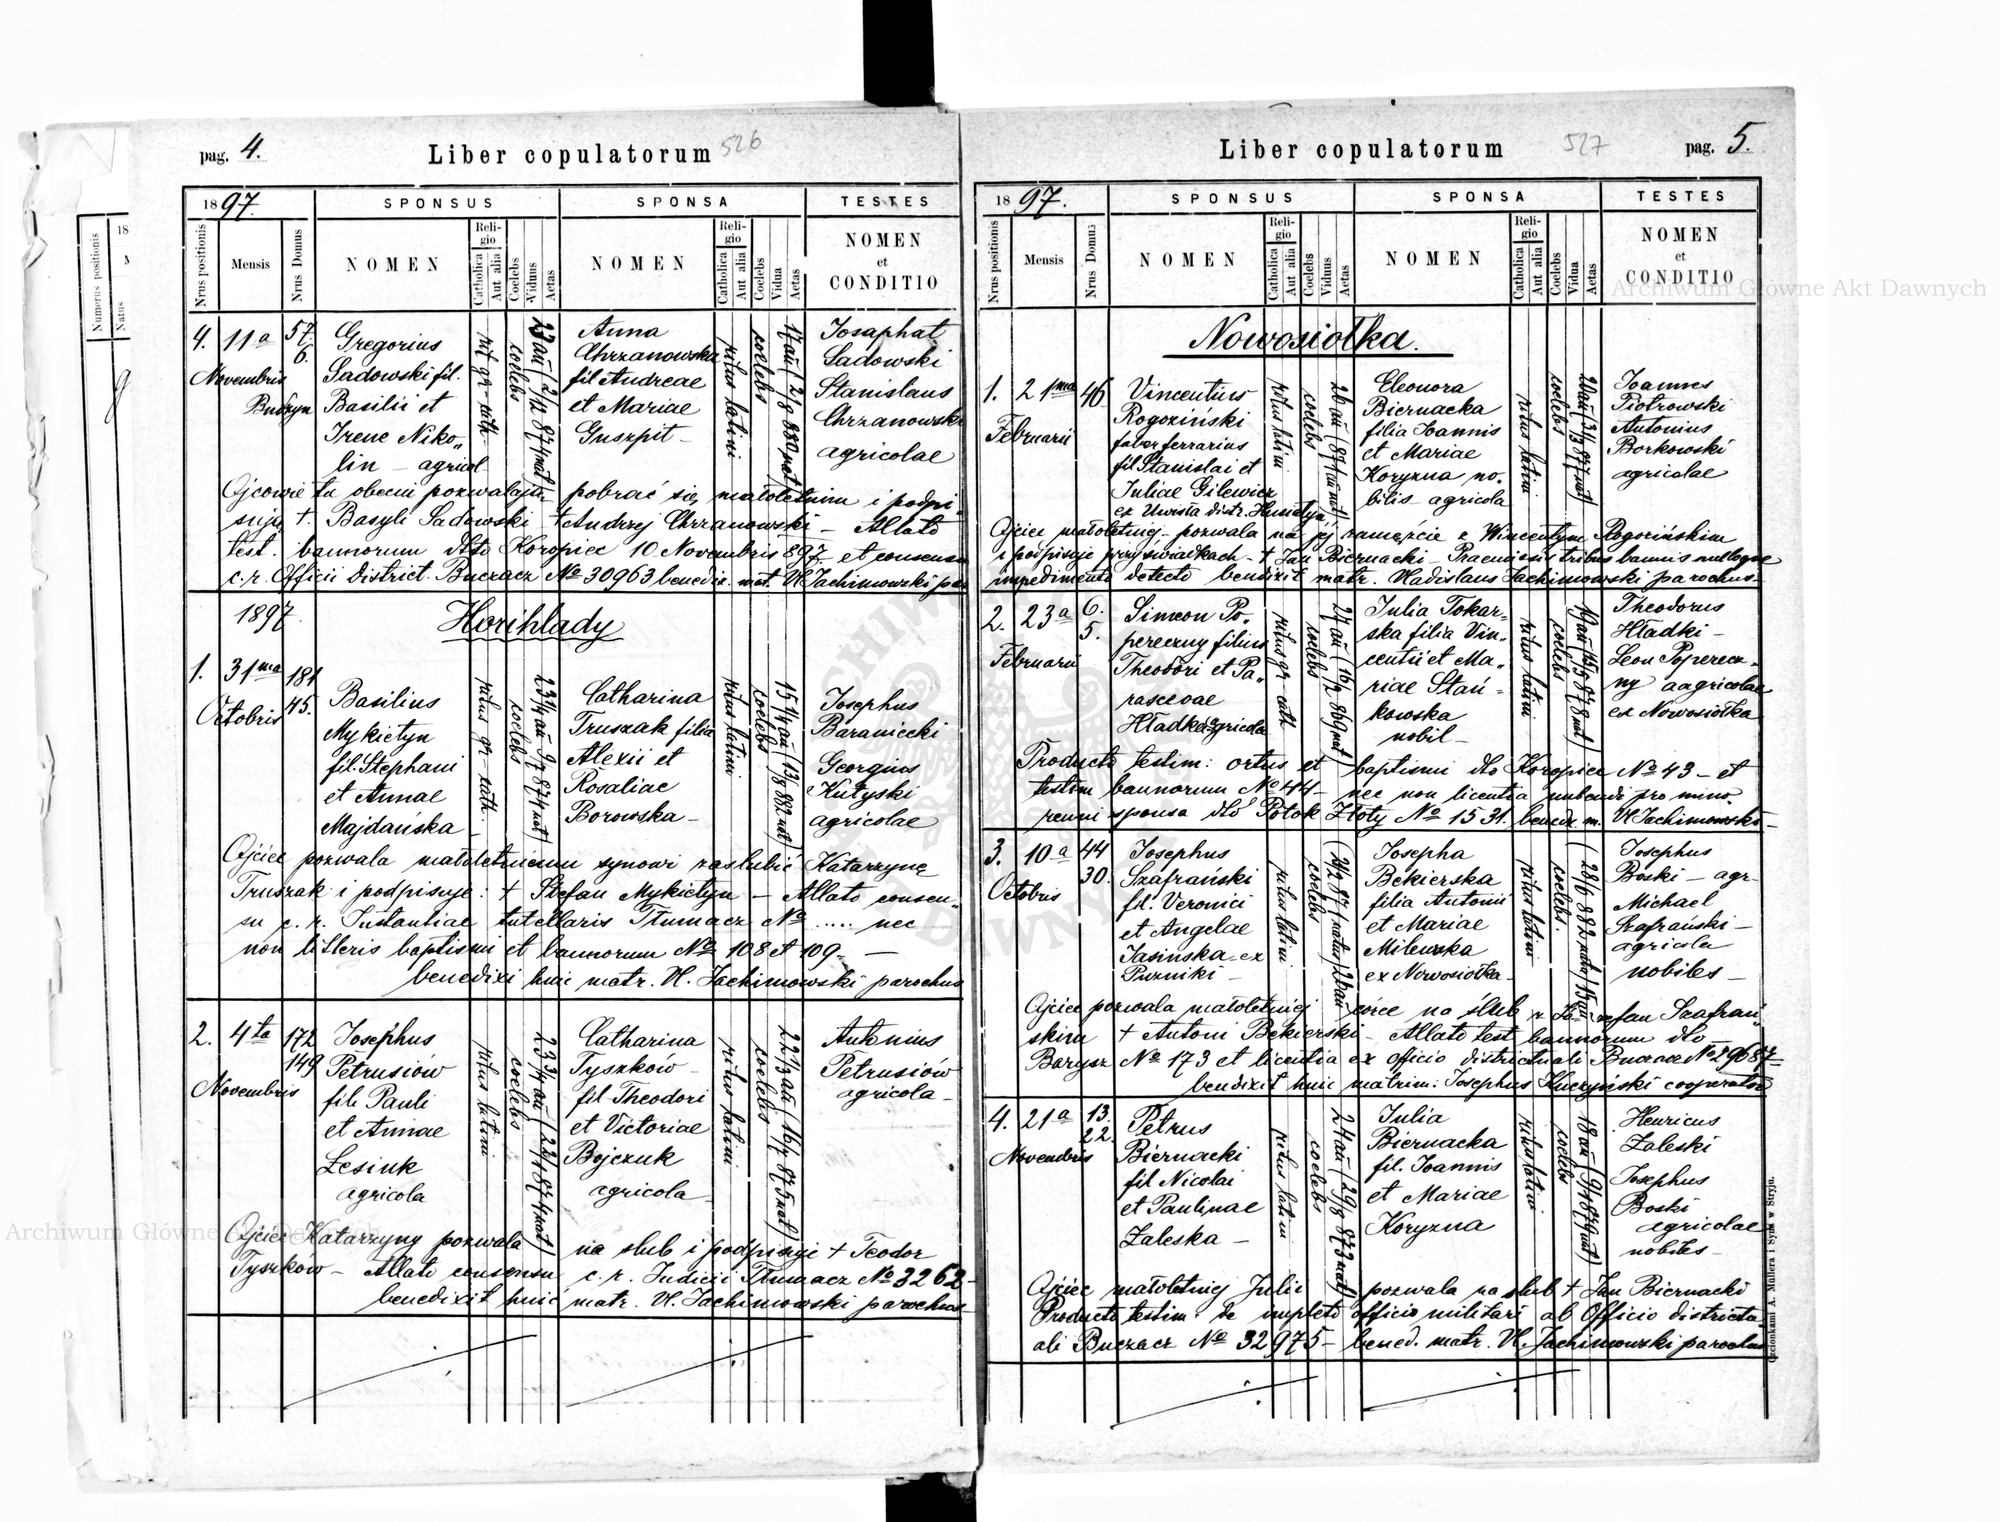 pag. 4.
Liber copulatorum
526
1897.
SPONSUS
SPONSA
TESTES
Nrus positionis
Mensis
Nrus Domus
NOMEN
Religio
Catholica
Aut alia
Coelebs
Viduus
Aetas
NOMEN
Religio
Catholica
Aut alia
Coelebs
Vidua
Aetas
NOMEN
et
CONDITIO
4. 11a 57.
6.
Novembris
Gregorius
Sadowski fil.
Basilii et
Irene Niko„
lin – agricol
coelebs
Anna
Chrzanowska
fil Andreae
et Mariae
Guszpit –
ritus latini
coelebs
Josaphat
Sadowski
Stanislaus
Chrzanowski
agricolae
Ojcowie tu obecni pozwalają pobrać się małoletnim i podpi„
sują †. Basyli Sadowski † Andrzej Chrzanowski – Allato
test. bannorum dto Koropiec 10 Novembris 897. et consensu
c. r. Officii district. Buczacz No 30963 benedix. mat. Vl Jachimowski
1897.
Horihlady
1. 31ma 181
45.
Octobris
Basilius
Mykietyn
fil. Stephani
et Annae
Majdańska –
ritus gr. cath.
coelebs
Catharina
Truszak filia
Alexii et
Rosaliae
Borowska –
ritus latini
coelebs
Josephus
Baraniecki
Georgius
Kutyski
agricolae
Ojciec pozwala małoletniemu synowi zaslubić Katarzynę
Truszak i podpisuje: † Stefan Mykietyn – Allato consen„
su c. r. Instantiae tutellaris Tłumacz No ..... nec
non litteris baptismi et bannorum No 108 et 109. –
benedixi huic matr. Vl. Jachimowski parochus
2. 4ta 172
149
Novembris
Josephus
Petrusiów
fil. Pauli
et Annae
Lesiuk
agricola
ritus latini
coelebs
Catharina
Tyszków –
fil Theodori
et Victoriae
Bojczuk
agricola –
ritus latini
coelebs
Antonius
Petrusiów
agricola –
Ojciec Katarzyny pozwala na slub i podpisuje † Teodor
Tyszków – Allato consensu c. r. Judicii Tłumacz No 3262 –
benedixit huic matr. Vl. Jachimowski parochus –
pag. 5.
Liber copulatorum
527
1897.
SPONSUS
SPONSA
TESTES
Nrus positionis
Mensis
Nrus Domus
NOMEN
Religio
Catholica
Aut alia
Coelebs
Viduus
Aetas
NOMEN
Religio
Catholica
Aut alia
Coelebs
Vidua
Aetas
NOMEN
et
CONDITIO
Nowosiołka.
1. 21ma 46
Februarii
Vincentius
Rogoziński
faber ferrarius
fil Stanislai et
Juliae Gilewicz
ex Uwisła distr. Husiatyn
ritus latini
coelebs
Eleonora
Biernacka
filia Joannis
et Mariae
Koryzna no„
bilis – agricola
ritus latini
coelebs
Joannes
Piotrowski
Antonius
Borkowski
agricolae
Ojciec małoletniej – pozwala na jej zamęzcie z Wincentym Rogozińskim
i podpisuje przy świadkach – † Jan Biernacki – Praemissis tribus bannis nulloque
impedimento detecto benedixit matr. Vladislaus Jachimowski parochus –
2. 23a 6.
5.
Februarii
Simeon Po„
pereczny filius
Theodori et Pa„
rascevae
Hładka agricola
ritus gr. cath
coelebs
Julia Tokar„
ska filia Vin„
centii et Ma„
riae Stań„
kowska
nobil –
ritus latini
coelebs
Theodorus
Hładki –
Leon Poperecz„
ny aagricolae
ex Nowosiołka
Producto testim: ortus et baptismi dto Koropiec No 43 – et
testim bannorum No 44 – nec non licentia nubendi pro mino„
renni sponsa dto Potok Złoty No 1531. bened. m. Vl Jachimowski –
3. 10a 44
30.
Octobris
Josephus
Szafrański
fil. Veronici
et Angelae
Jasińska ex
Puzniki –
ritus latini
coelebs
Josepha
Bekierska
filia Antonii
et Mariae
Milewska
ex Nowosiołka –
ritus latini
coelebs.
Josephus
Boski – agr –
Michael
Szafrański –
agricola
nobiles –
Ojciec pozwala małoletniej córce na ślub z Józefem Szafrań„
skim † Antoni Bekierski – Allato test bannorum dto
Barysz No 173 et licentia ex officio districtuali Buczacz No 29687 –
benedixit huic matrim: Josephus Kuczyński cooperator
4. 21a 13.
22.
Novembris
Petrus
Biernacki
fil Nicolai
et Paulinae
Zaleska –
ritus latini
coelebs
Julia
Biernacka
fil. Joannis
et Mariae
Koryzna
ritus latini
coelebs
Henricus
Zaleski
Josephus
Boski
agricolae
nobiles –
Ojciec małoletniej Julii pozwala na slub † Jan Biernacki
Producto testim. de impleto officio militari ab Officio districtu
ali Buczacz No 32975 – bened. matr. Vl. Jachimowski parochus
Czcionkami A. Müllera i Syna w Stryju.
Archiwum Główne Akt Dawnych
Archiwum Główne Akt Dawnych